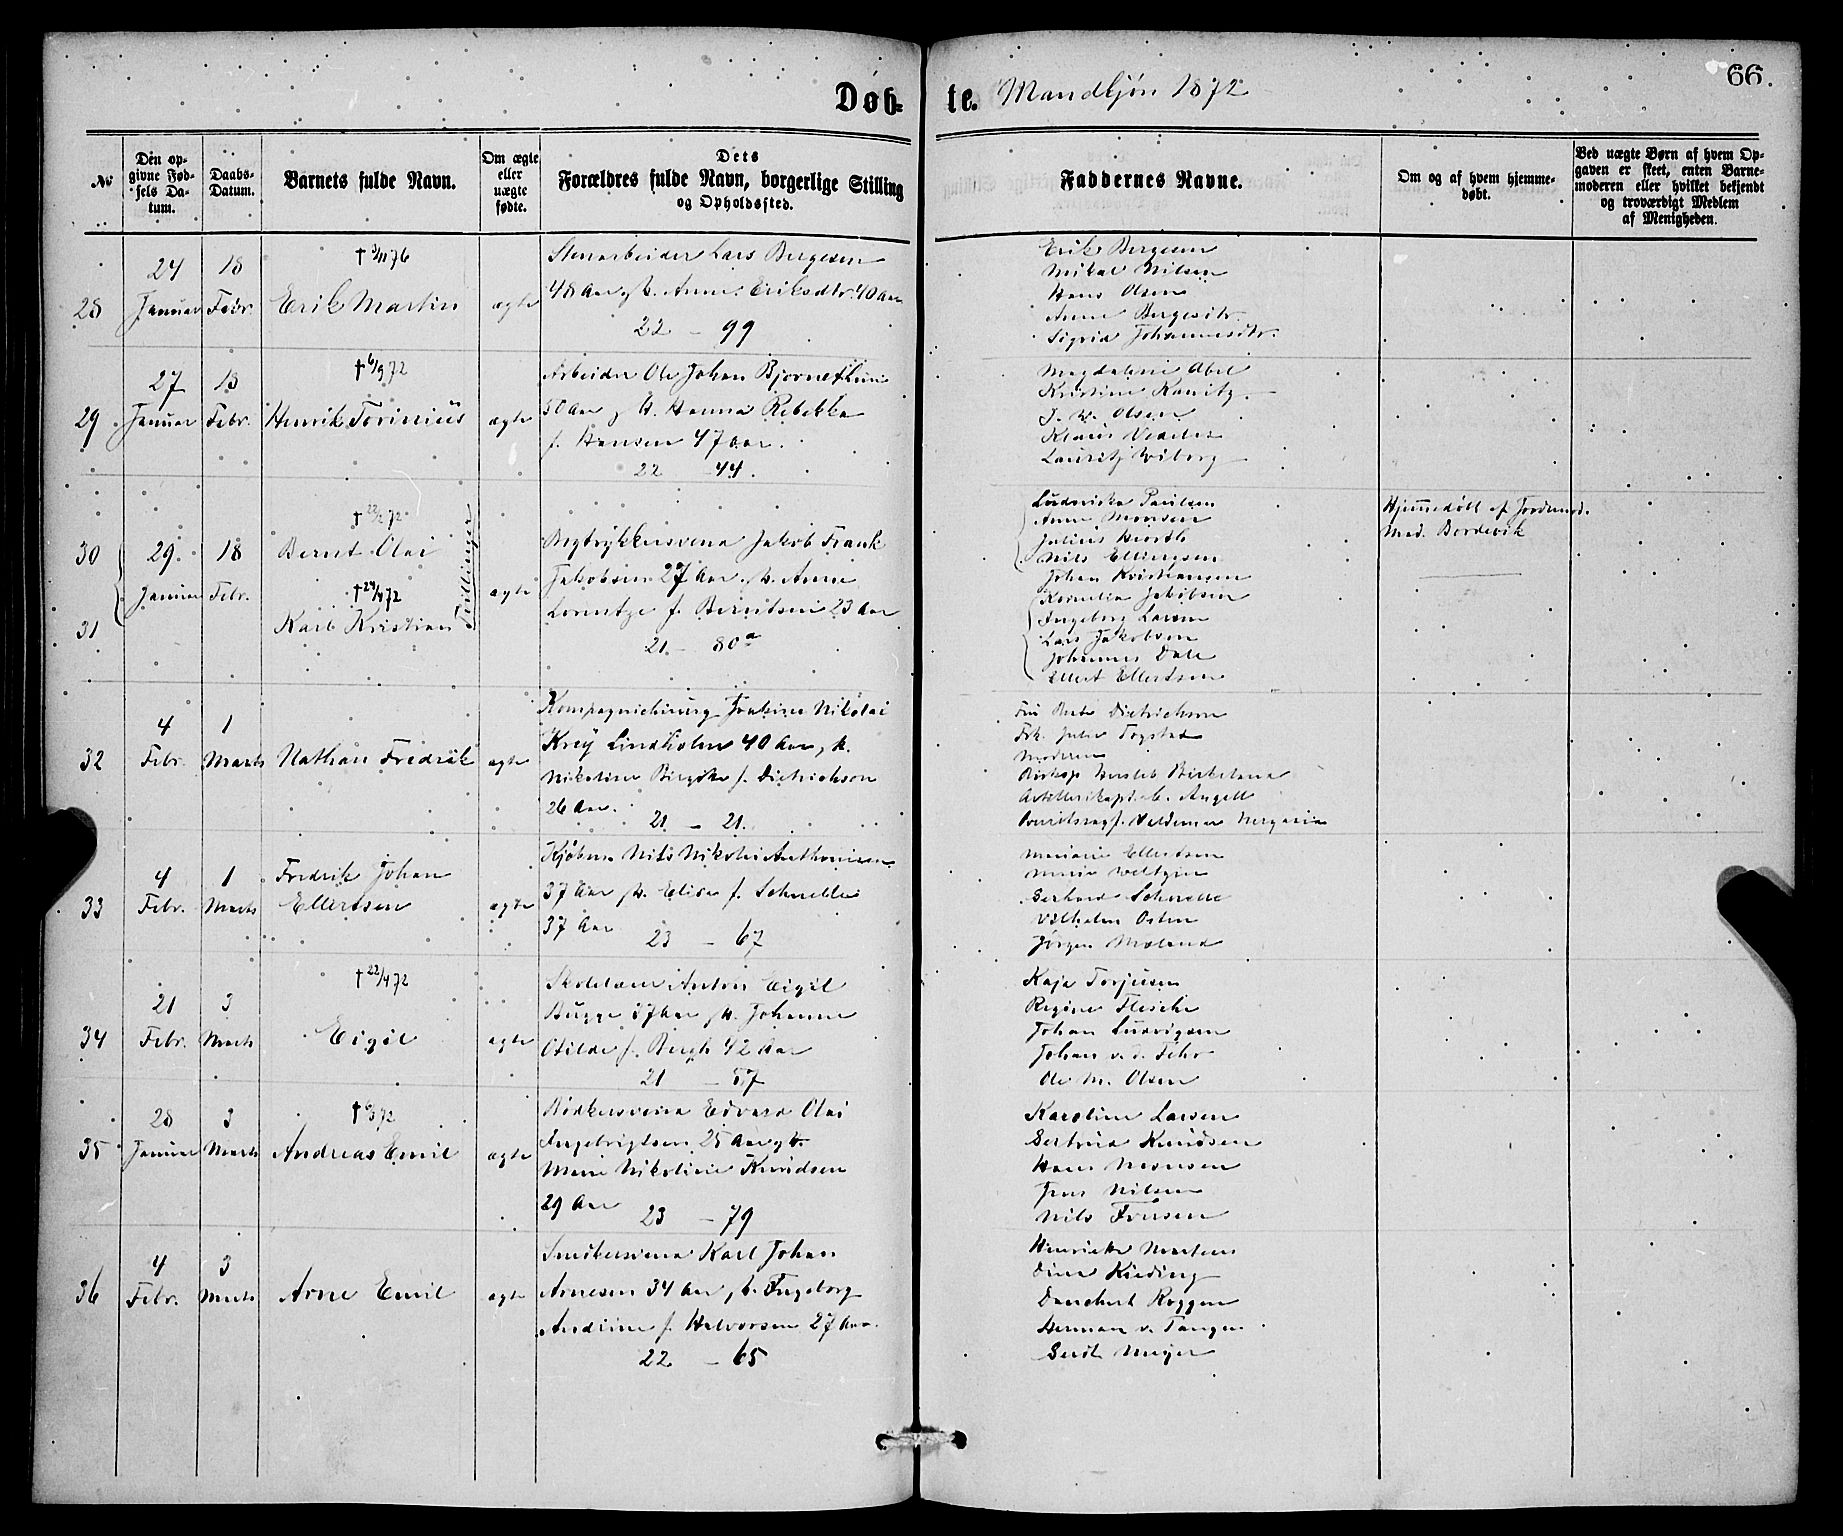 66.
Døb-te. Mandkjøn 1872
No
Den opgivne Fødsels Datum.
Daabs-Datum.
Barnets fulde Navn.
Om ægte eller uægte fødte.
Dets Forældres fulde Navn, borgerlige Stilling og Opholdssted.
Faddernes Navne.
Om og af hvem hjemmedøbt.
Ved uægte Børn af hvem Opgaven er skeet, enten Barnemoderen eller hvilket bekjendt og troværdigt Medlem af Menigheden.
28
24 Januar
18 Febr.
Erik Martin
ægte
Stenarbeider Lars Bergesen
48 Aar, h. Anne Eriksdtr. 40 Aar
22 - 99
Erik Bergesen
Mikal Nilsen
Hans Olsen
Anne Bergesdtr.
Sigrid Johannesdtr.
29
27 Januar
18 Febr.
† 6/9 72
Henrik Torinius
ægte
Arbeider Ole Johan
50 Aar, h. Hanna Rebekka
f. Hansen 47 aar.
22 - 44.
Magdalene Abel
Kristine
J. W. Olsen
Klaus
Lauritz Wiborg
30
29 Januar
18 Febr.
† 22/2 72
Bernt Olai
Tvillinger
ægte
Jakob Frank
Jakobsen 27 Aar, h. Anne
Lorentze f. Berntsen 23 Aar
21 - 80a
Ludovika Paulsen
Anne Monsen
Julius
Nils Ellingsen
Johan Kristiansen
Hjemmedøbt af Jordemod.
Mad. Bordevik
31
Karl Kristian
Kornelia Jakobsen
Ingeborg Larsen
Lars Jakobsen
Johannes Dale
Ellert Ellertsen
32
4 Febr.
1 Marts
Nathan Fredrik
ægte
Kompagnichirurg Joakim Nikolai
Krey Lindholm 40 Aar, h.
Nikoline Birgithe f. Dietrichson
26 Aar.
21 - 21.
Fru Dietrichson
Frk. Julie Fogstad
Moderen
Biskop Hersleb Birkeland
Artillerikapt. C. Angell
33
4 Febr.
1 Marts
Fredrik Johan
Ellertsen
ægte
Kjøbm. Nils Nikolai Anthonisen
37 Aar, h. Elisa f. Schnelle
37 Aar
23 - 67
Marianne Ellertsen
Marie
Gerhard Schnelle
Vilhelm Osten
Jørgen Moland
34
21 Febr.
3 Marts
† 22/4 72
Eigil
ægte
Anton Eigil
Bugge 37 Aar, h. Johanne
Otilde f. Bergh 42 Aar
21 - 57
Kaja Torjusen
Regine Flesche
Johan Ludvigsen
Johan v. d. Fehr
Ole M. Olsen
35
28 Januar
3 Marts
Andreas Emil
ægte
Bødkersvend Edvard Olai
Ingebrigtsen 25 Aar, h.
Marie Nikoline Knudsen
29 Aar
23 - 79
Karoline Larsen
Gertrud Knudsen
Hans Monsen
Jens Nilsen
Nils
36
4 Febr.
3 Marts
Arne Emil
ægte
Karl Johan
Arnesen 34 Aar, h. Ingeborg
Andrine f. Halvorsen 27 Aar.
22 - 65
Henriette Martens
Dina Kieding
Danchert Roggen
Herman v. Tangen
Gerdt Meyer